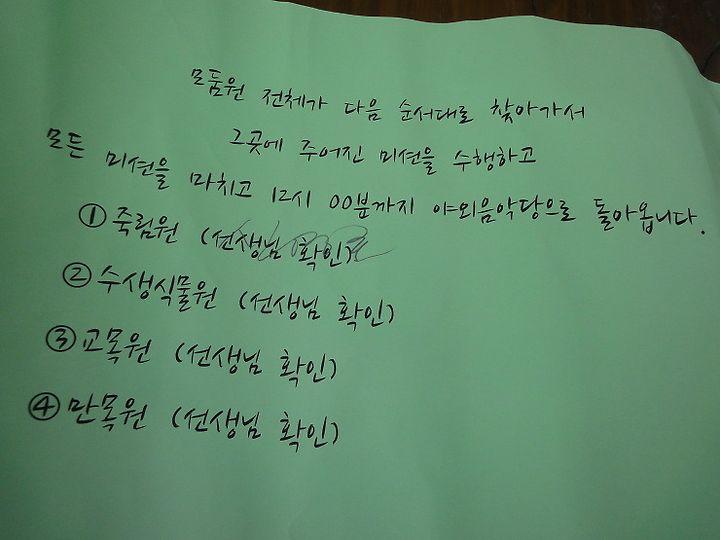 모둠원 전체가 다음 순서대로 찾아가서
그곳에 주어진 미션을 수행하고
모든 미션을 마치고 12시 00분까지 야외음악당으로 돌아옵니다.
① 죽림원 (선생님 확인)
② 수생식물원 (선생님 확인)
③ 교목원 (선생님 확인)
④ 만목원 (선생님 확인)